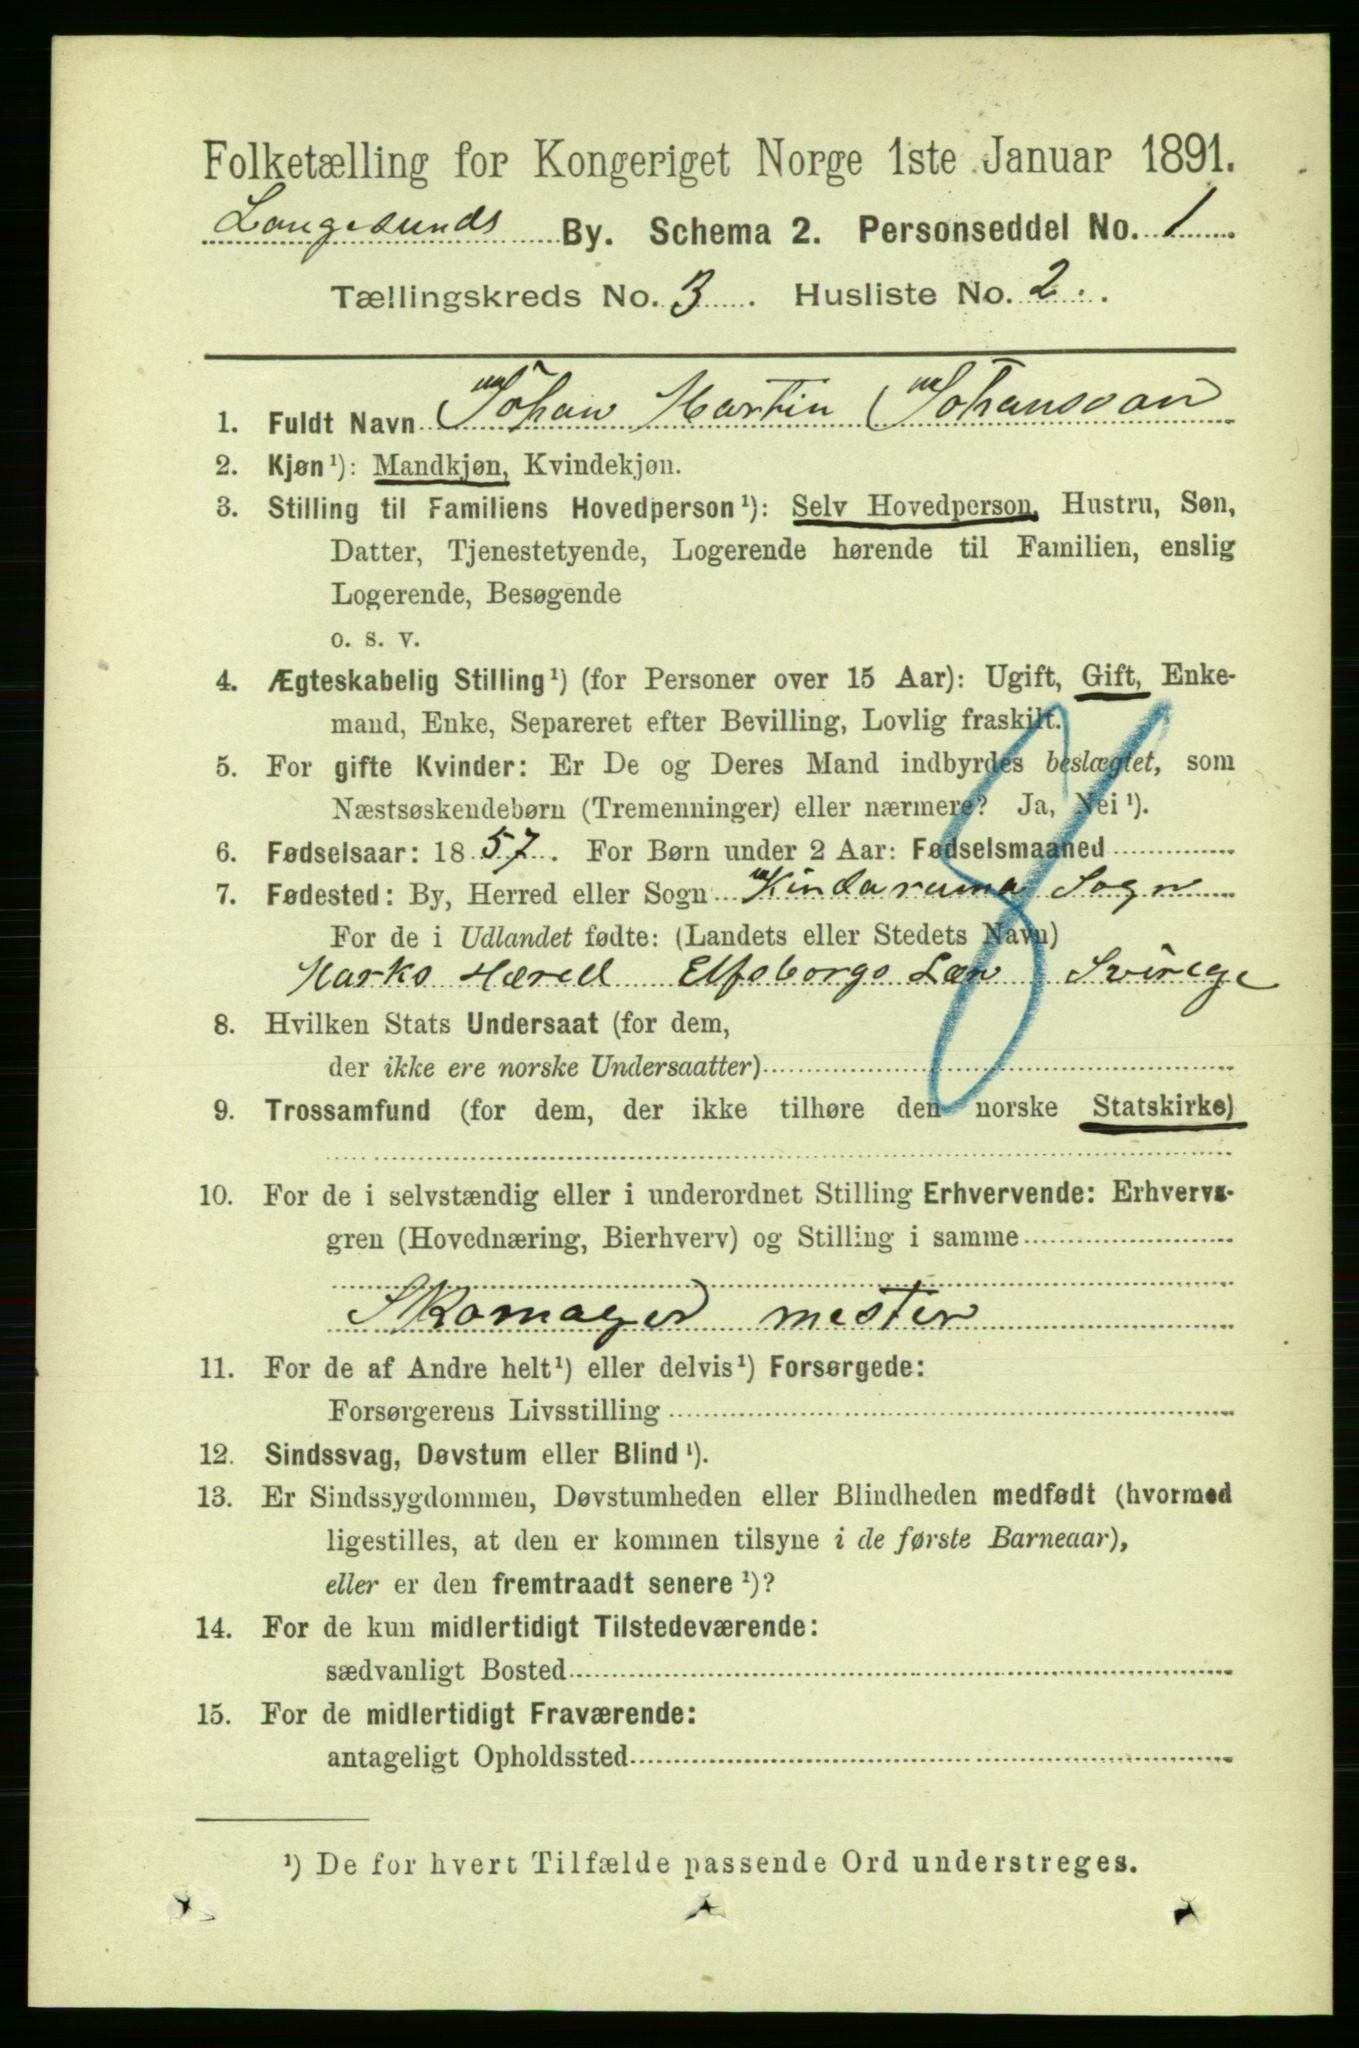 Folketælling for Kongeriget Norge 1ste Januar 1891.
Langesunds By. Schema 2. Personseddel No. 1
Tællingskreds No. 3. Husliste No. 2.
1. Fuldt Navn Johan Martin Johansson
2. Kjøn¹): Mandkjøn, Kvindekjøn.
3. Stilling til Familiens Hovedperson¹): Selv Hovedperson, Hustru, Søn,
Datter, Tjenestetyende, Logerende hørende til Familien, enslig
Logerende, Besøgende
o. s. v.
4. Ægteskabelig Stilling¹) (for Personer over 15 Aar): Ugift, Gift, Enke-
mand, Enke, Separeret efter Bevilling, Lovlig fraskilt.
5. For gifte Kvinder: Er De og Deres Mand indbyrdes beslægtet, som
Næstsøskendebørn (Tremenninger) eller nærmere? Ja, Nei¹).
6. Fødselsaar: 1857. For Børn under 2 Aar: Fødselsmaaned
7. Fødested: By, Herred eller Sogn Kindaruma Sogn
For de i Udlandet fødte: (Landets eller Stedets Navn)
Marks Hæred Elfsborgs Læn Sverige
8. Hvilken Stats Undersaat (for dem,
der ikke ere norske Undersaatter)
9. Trossamfund (for dem, der ikke tilhøre den norske Statskirke)
10. For de i selvstændig eller i underordnet Stilling Erhvervende: Erhvervs-
gren (Hovednæring, Bierhverv) og Stilling i samme
Skomager mester
11. For de af Andre helt¹) eller delvis¹) Forsørgede:
Forsørgerens Livsstilling
12. Sindssvag, Døvstum eller Blind¹).
13. Er Sindssygdommen, Døvstumheden eller Blindheden medfødt (hvormed
ligestilles, at den er kommen tilsyne i de første Barneaar),
eller er den fremtraadt senere¹)?
14. For de kun midlertidigt Tilstedeværende:
sædvanligt Bosted
15. For de midlertidigt Fraværende:
antageligt Opholdssted
¹) De for hvert Tilfælde passende Ord understreges.